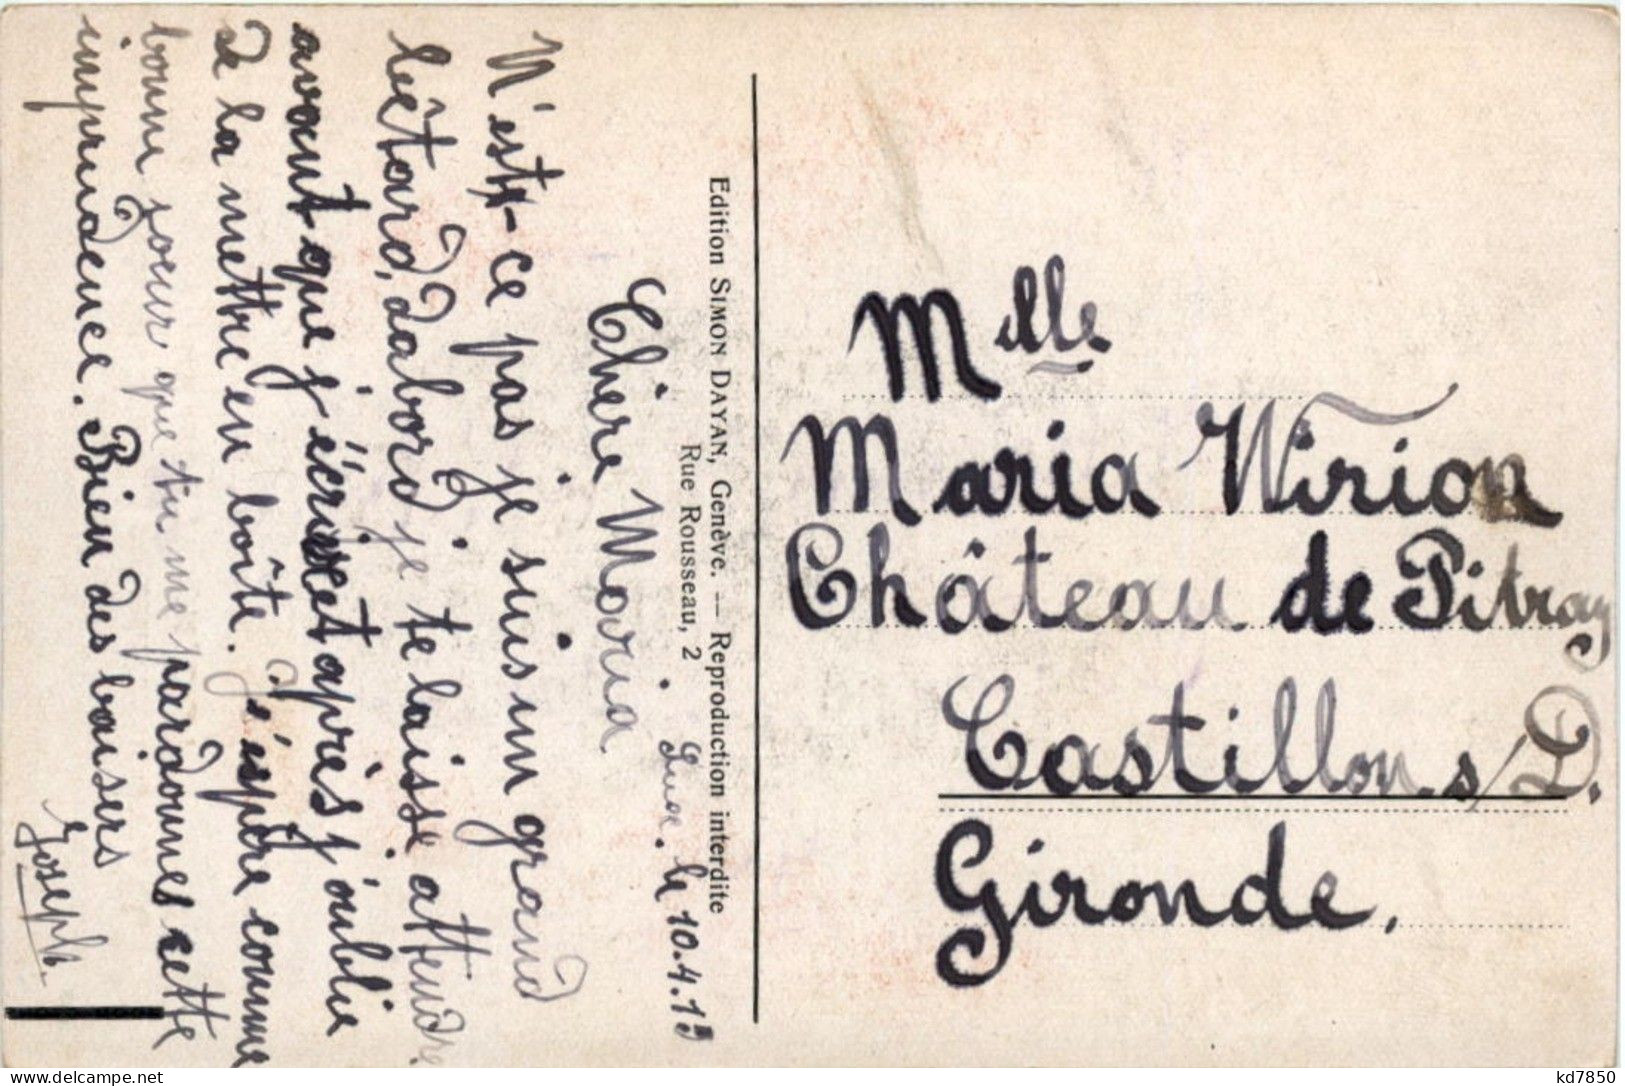 Edition SIMON DAYAN, Genève. — Reproduction interdite
Rue Rousseau, 2
le 10.4.13
Chère Maria
N'est-ce pas je suis un grand
bêtard, dabord je te laisse attendre
avant que j'écris et après j'oublie
de la mettre en boîte. J'espère comme
bonne soeur que tu me pardonnes cette
imprudence. Bien des baisers
Joseph.
Mlle
Maria Wirion
Château de Pitray
Castillon s/D.
Gironde.
delcampe.net
kd7850